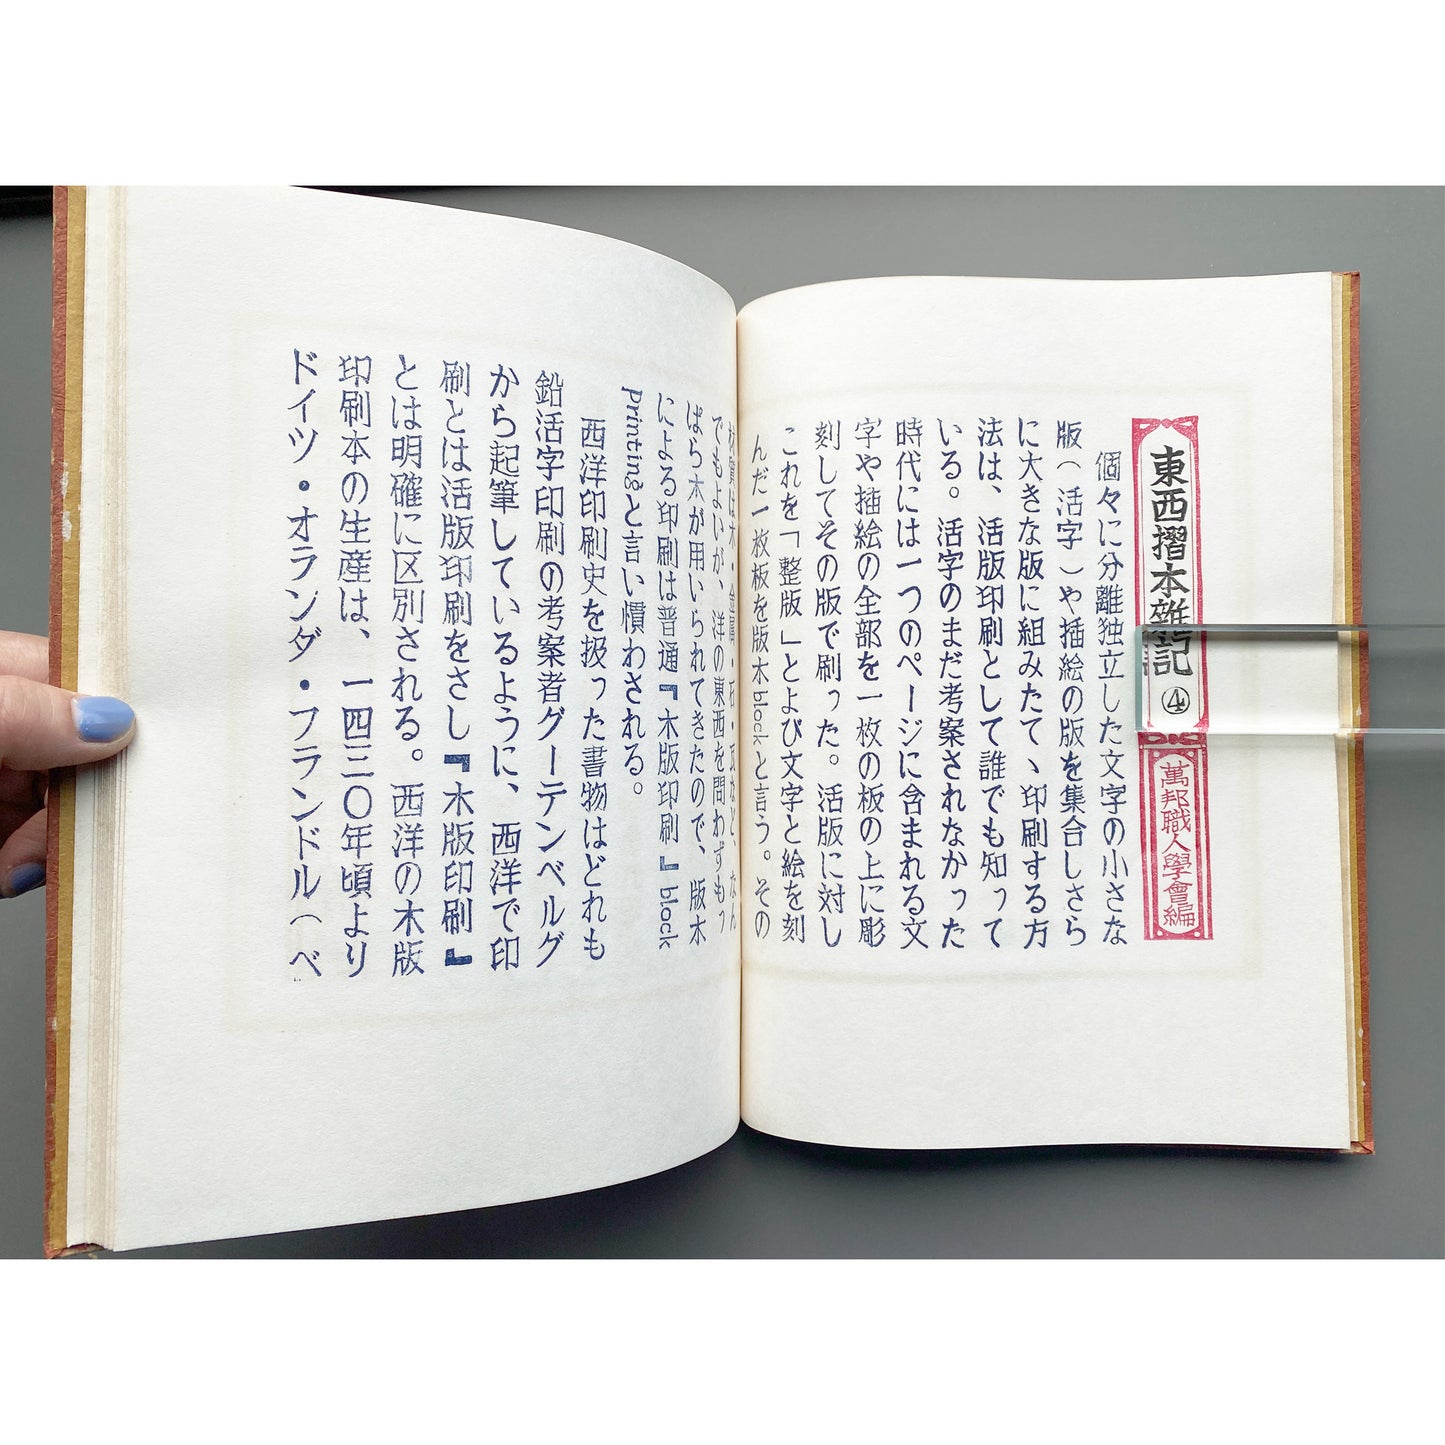 東西摺本雑記④
萬邦職人學會編
個々に分離独立した文字の小さな
版(活字)や挿絵の版を集合しさら
に大きな版に組みたて、印刷する方
法は、活版印刷として誰でも知って
いる。活字のまだ考案されなかった
時代には一つのページに含まれる文
字や挿絵の全部を一枚の板の上に彫
刻してその版で刷った。活版に対し
これを「整版」とよび文字と絵を刻
んだ一枚板を版木blockと言う。その
材質は木・金属・石・瓦など、なん
でもよいが、洋の東西を問わずもっ
ぱら木が用いられてきたので、版木
による印刷は普通『木版印刷』block
printingと言い慣わされる。
西洋印刷史を扱った書物はどれも
鉛活字印刷の考案者グーテンベルグ
から起筆しているように、西洋で印
刷とは活版印刷をさし『木版印刷』
とは明確に区別される。西洋の木版
印刷本の生産は、一四三〇年頃より
ドイツ・オランダ・フランドル(ベ